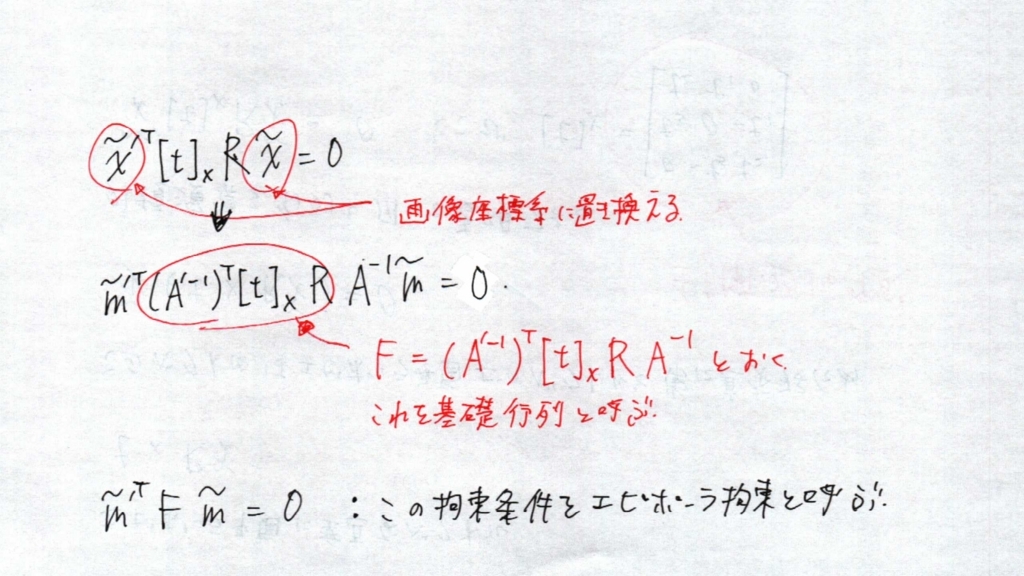 x̃'ᵀ[t]ₓ R x̃ = 0
画像座標系に置き換える.
m̃'ᵀ(A'⁻¹)ᵀ[t]ₓ R A⁻¹ m̃ = 0.
F = (A'⁻¹)ᵀ[t]ₓ R A⁻¹ とおく.
これを基礎行列と呼ぶ.
m̃'ᵀ F m̃ = 0 : この拘束条件をエピポーラ拘束と呼ぶ.